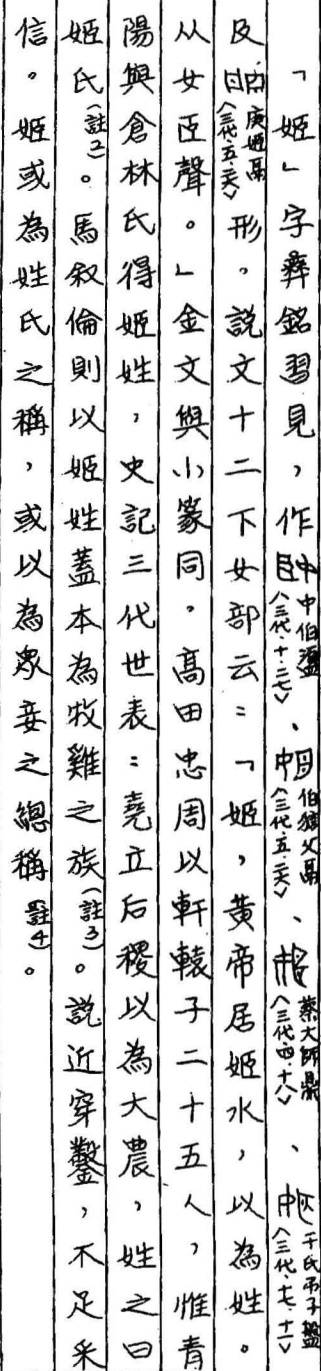 「姬」字彝銘習見，作中伯盨（三代·十·二七）、伯狺父鬲（三代·五·二八）、蔡大師鼎（三代·四·十八）、干氏弔子盤（三代·十七·十一）
及庚姬鬲（三代·五·二八）形，說文十二下女部云：「姬，黃帝居姬水，以為姓。
从女𦣞聲。」金文與小篆同。高田忠周以軒轅子二十五人，惟青
陽與倉林氏得姬姓，史記三代世表：堯立后稷以為大農，姓之曰
姬氏（註2）。馬叙倫則以姬姓蓋本為牧雞之族（註3）。說近穿鑿，不足采
信。姬或為姓氏之稱，或以為眾妾之總稱（註4）。